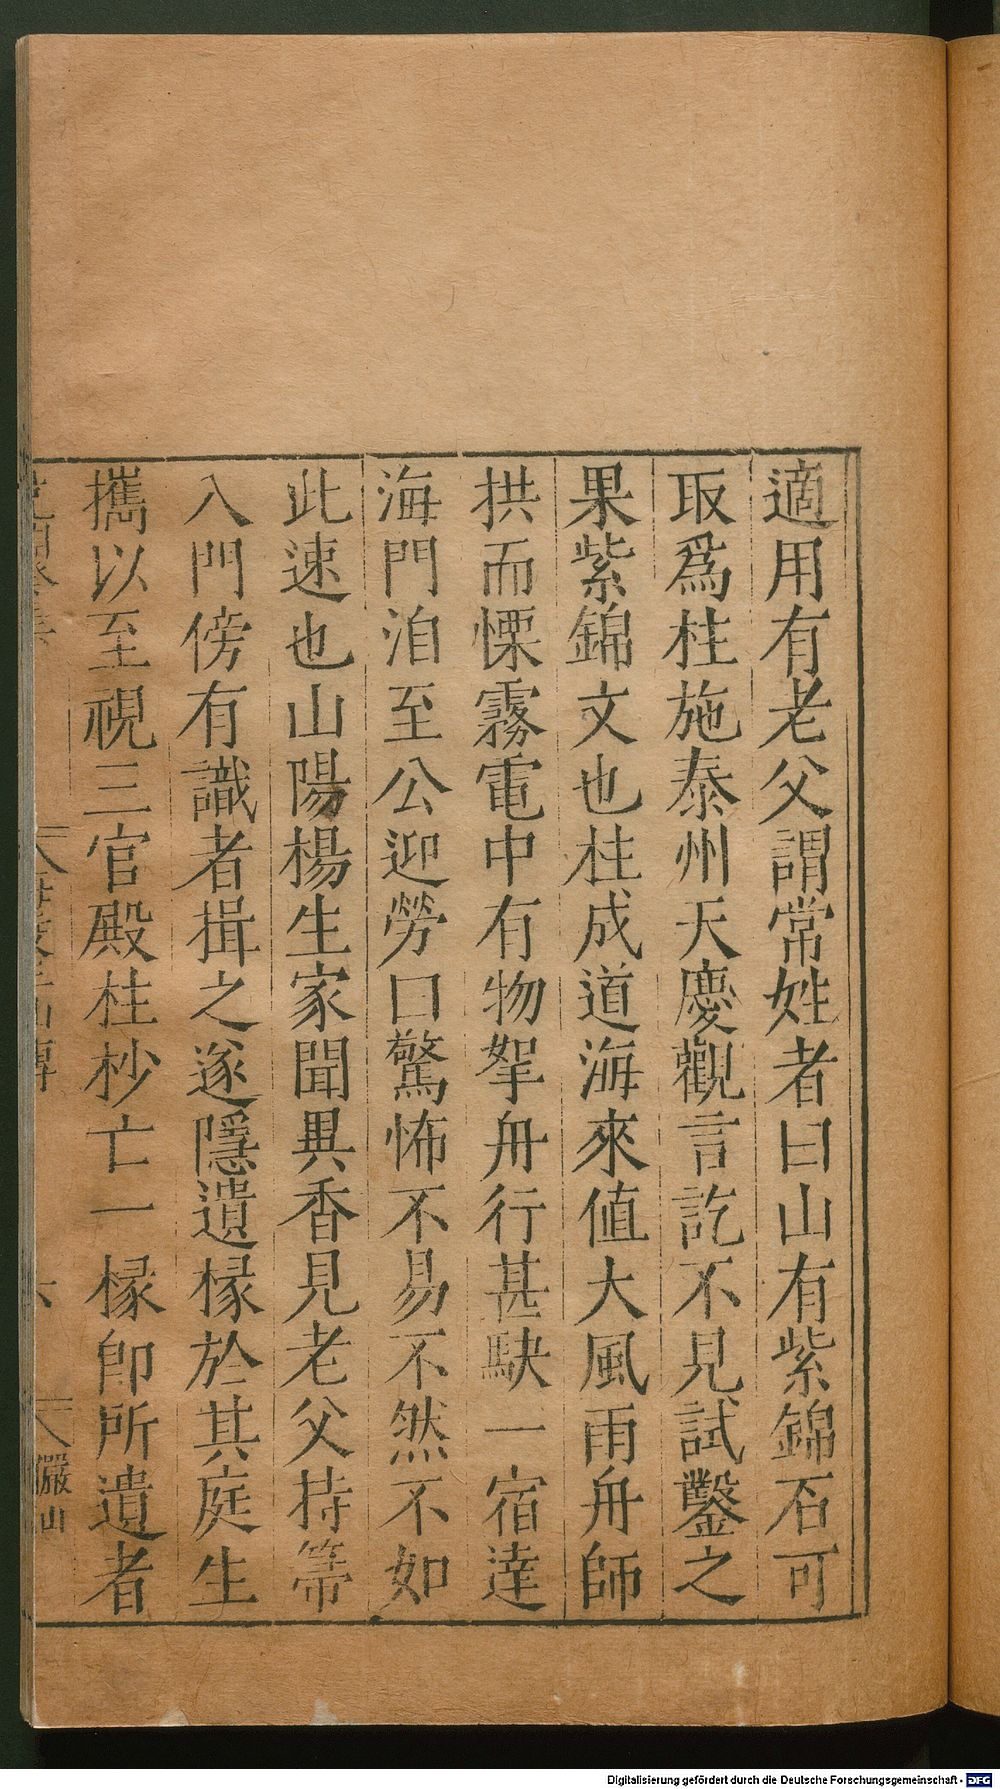 適用有老父謂常姓者曰山有紫錦石可
取爲柱施泰州天慶觀言訖不見試鑿之
果紫錦文也柱成道海來值大風雨舟師
拱而慄霧電中有物挐舟行甚駃一宿達
海門洎至公迎勞曰驚怖不易不然不如
此速也山陽楊生家聞異香見老父持箒
入門傍有識者揖之遂隱遺椽於其庭生
攜以至視三官殿柱杪亡一椽卽所遺者
儼山
Digitalisierung gefördert durch die Deutsche Forschungsgemeinschaft - DFG